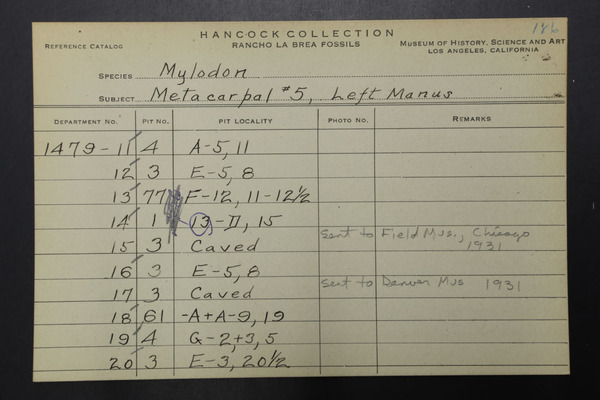 186
HANCOCK COLLECTION
REFERENCE CATALOG RANCHO LA BREA FOSSILS MUSEUM OF HISTORY, SCIENCE AND ART
LOS ANGELES, CALIFORNIA
SPECIES Mylodon
SUBJECT Metacarpal #5, Left Manus
DEPARTMENT NO. PIT NO. PIT LOCALITY PHOTO NO. REMARKS
1479-11 4 A-5, 11
12 3 E-5, 8
13 77 F-12, 11-12½
14 1 13-D, 15
15 3 Caved Sent to Field Mus., Chicago 1931
16 3 E-5, 8
17 3 Caved Sent to Denver Mus 1931
18 61 -A+A-9, 19
19 4 G-2+3, 5
20 3 E-3, 20½